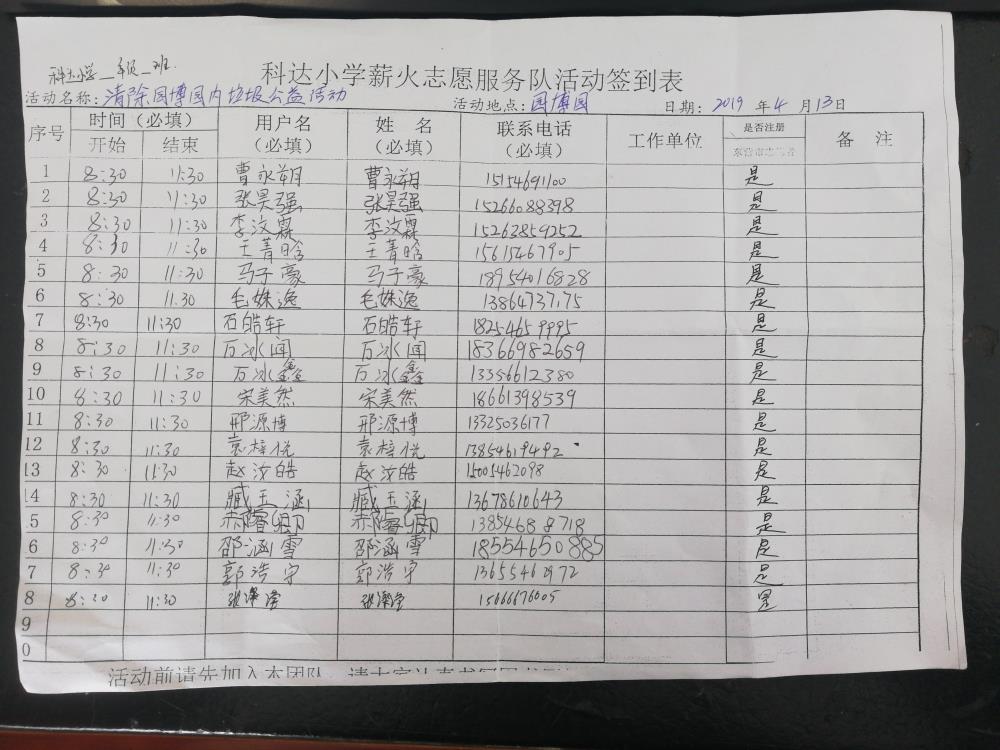 科达小学 年级 班
科达小学薪火志愿服务队活动签到表
活动名称：清除园博园内垃圾公益活动 活动地点：园博园 日期：2019 年 4 月 13 日
序号 时间（必填） 用户名（必填） 姓 名（必填） 联系电话（必填） 工作单位 是否注册 备 注
开始 结束
1 8:30 11:30 曹永朔 曹永朔 15154691100 是
2 8:30 11:30 张昊强 张昊强 15266088398 是
3 8:30 11:30 李汶霖 李汶霖 15262859252 是
4 8:30 11:30 王菁晗 王菁晗 15615467905 是
5 8:30 11:30 马子豪 马子豪 18954016828 是
6 8:30 11.30 毛姝逸 毛姝逸 13864737175 是
7 8:30 11:30 石皓轩 石皓轩 18254659995 是
8 8:30 11:30 万冰闻 万冰闻 18366982659 是
9 8:30 11:30 万冰鑫 万冰鑫 13356612380 是
10 8:30 11:30 宋美然 宋美然 18661398539 是
11 8:30 11:30 邢源博 邢源博 13325036177 是
12 8:30 11:30 袁梓悦 袁梓悦 13854619492 是
13 8:30 11:30 赵汝皓 赵汝皓 15005462098 是
14 8:30 11:30 臧玉涵 臧玉涵 13678610643 是
5 8:30 11:30 13854688718 是
6 8:30 11:30 邵涵雪 邵涵雪 18554650885 是
7 8:30 11:30 郭浩宇 郭浩宇 是
8 8:30 11:30 15666676005 是
9
0
活动前请先加入本团队